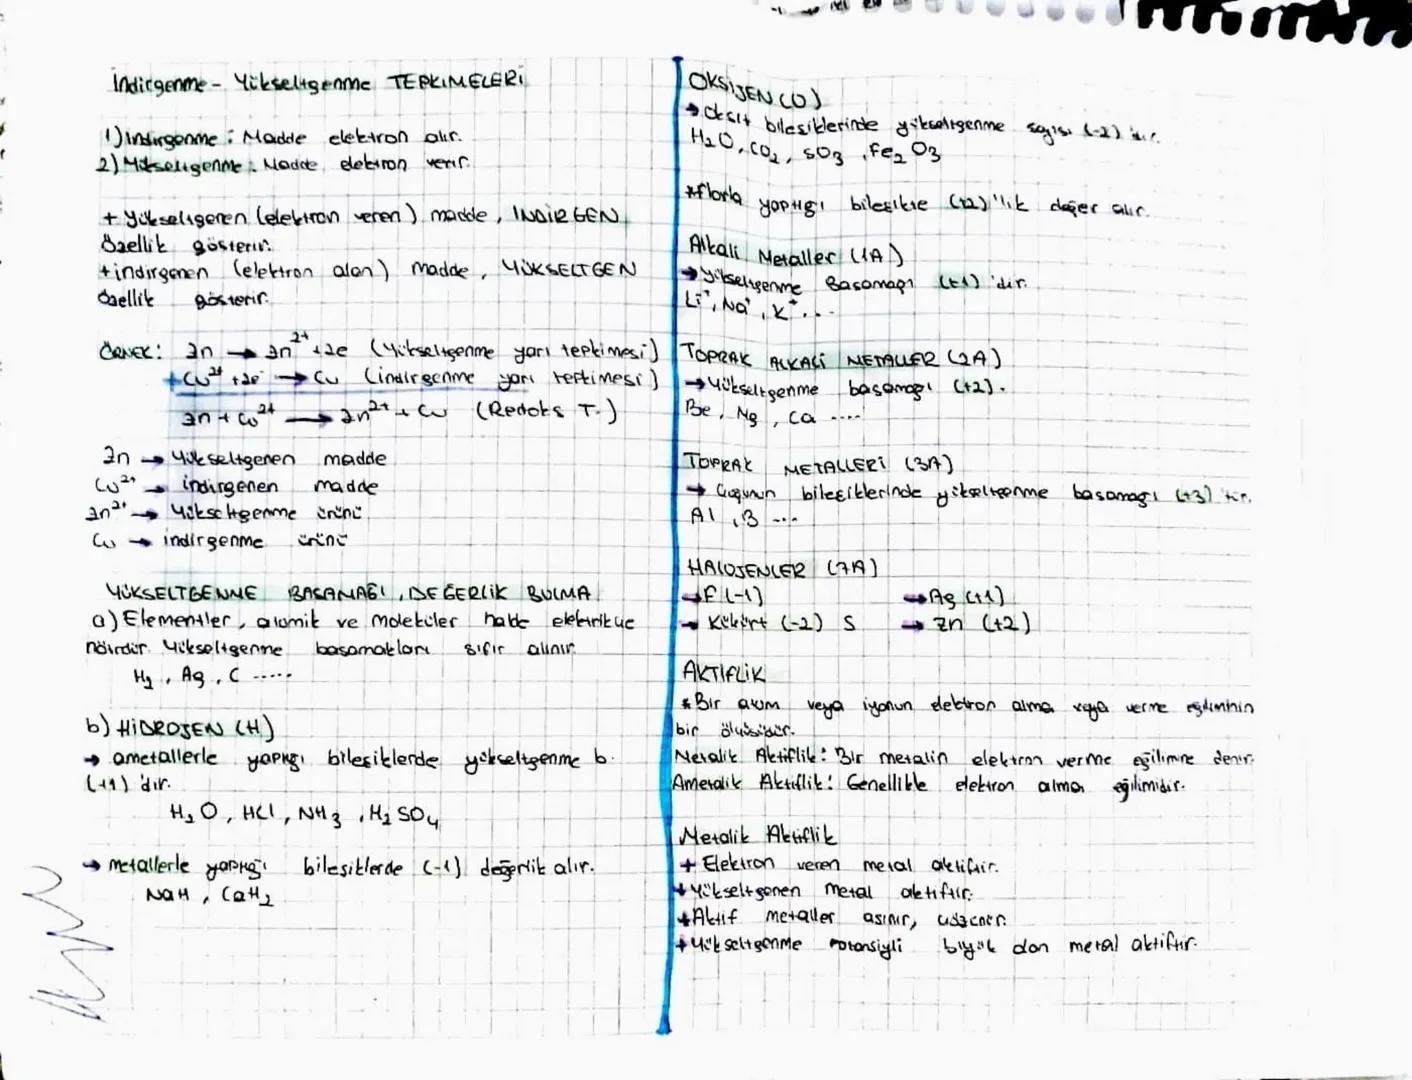 İndirgenme - Yükseltgenme TEPKİMELERİ
1) İndirgenme : Madde elektron alır.
2) Yükseltgenme : Madde elektron verir.
+ Yükseltgenen (elektron veren) madde, İNDİRGEN
özellik gösterir.
+ indirgenen (elektron alan) madde, YÜKSELTGEN
özellik gösterir.
ÖRNEK: Zn → Zn²⁺ + 2e (Yükseltgenme yarı tepkimesi)
+ Cu²⁺ + 2e⁻ → Cu (indirgenme yarı tepkimesi)
Zn + Cu²⁺ → Zn²⁺ + Cu (Redoks T.)
Zn → Yükseltgenen madde
Cu²⁺ → indirgenen madde
Zn²⁺ → Yükseltgenme ürünü
Cu → indirgenme ürünü
YÜKSELTGENME BASAMAĞI, DEĞERLİK BULMA
a) Elementler, atomik ve moleküler halde elektrikçe
nötrdür. Yükseltgenme basamakları sıfır alınır.
H₂, Ag, C .....
b) HİDROJEN (H)
→ ametallerle yaptığı bileşiklerde yükseltgenme b.
(+1)'dir.
H₂O, HCl, NH₃, H₂SO₄
→ metallerle yaptığı bileşiklerde (-1) değerlik alır.
NaH, CaH₂
OKSİJEN (O)
→ Oksit bileşiklerinde yükseltgenme sayısı (-2)'dir.
H₂O, CO₂, SO₃, Fe₂O₃
*florla yaptığı bileşikte (+2)'lik değer alır.
Alkali Metaller (1A)
→ Yükseltgenme Basamağı (+1)'dir.
Li⁺, Na⁺, K⁺...
TOPRAK ALKALİ METALLER (2A)
→ Yükseltgenme basamağı (+2).
Be, Mg, Ca ....
TOPRAK METALLERİ (3A)
→ Çoğunun bileşiklerinde yükseltgenme basamağı (+3)'tür.
Al, B ...
HALOJENLER (7A)
→ F (-1) → Ag (+1)
→ Kükürt (-2) S → Zn (+2)
AKTİFLİK
* Bir atom veya iyonun elektron alma veya verme eğiliminin
bir ölçüsüdür.
Metalik Aktiflik: Bir metalin elektron verme eğilimine denir.
Ametalik Aktiflik: Genellikle elektron alma eğilimidir.
Metalik Aktiflik
+ Elektron veren metal aktiftir.
+ Yükseltgenen metal aktiftir.
+ Aktif metaller aşınır,
+ Yükseltgenme Potansiyli büyük olan metal aktiftir.